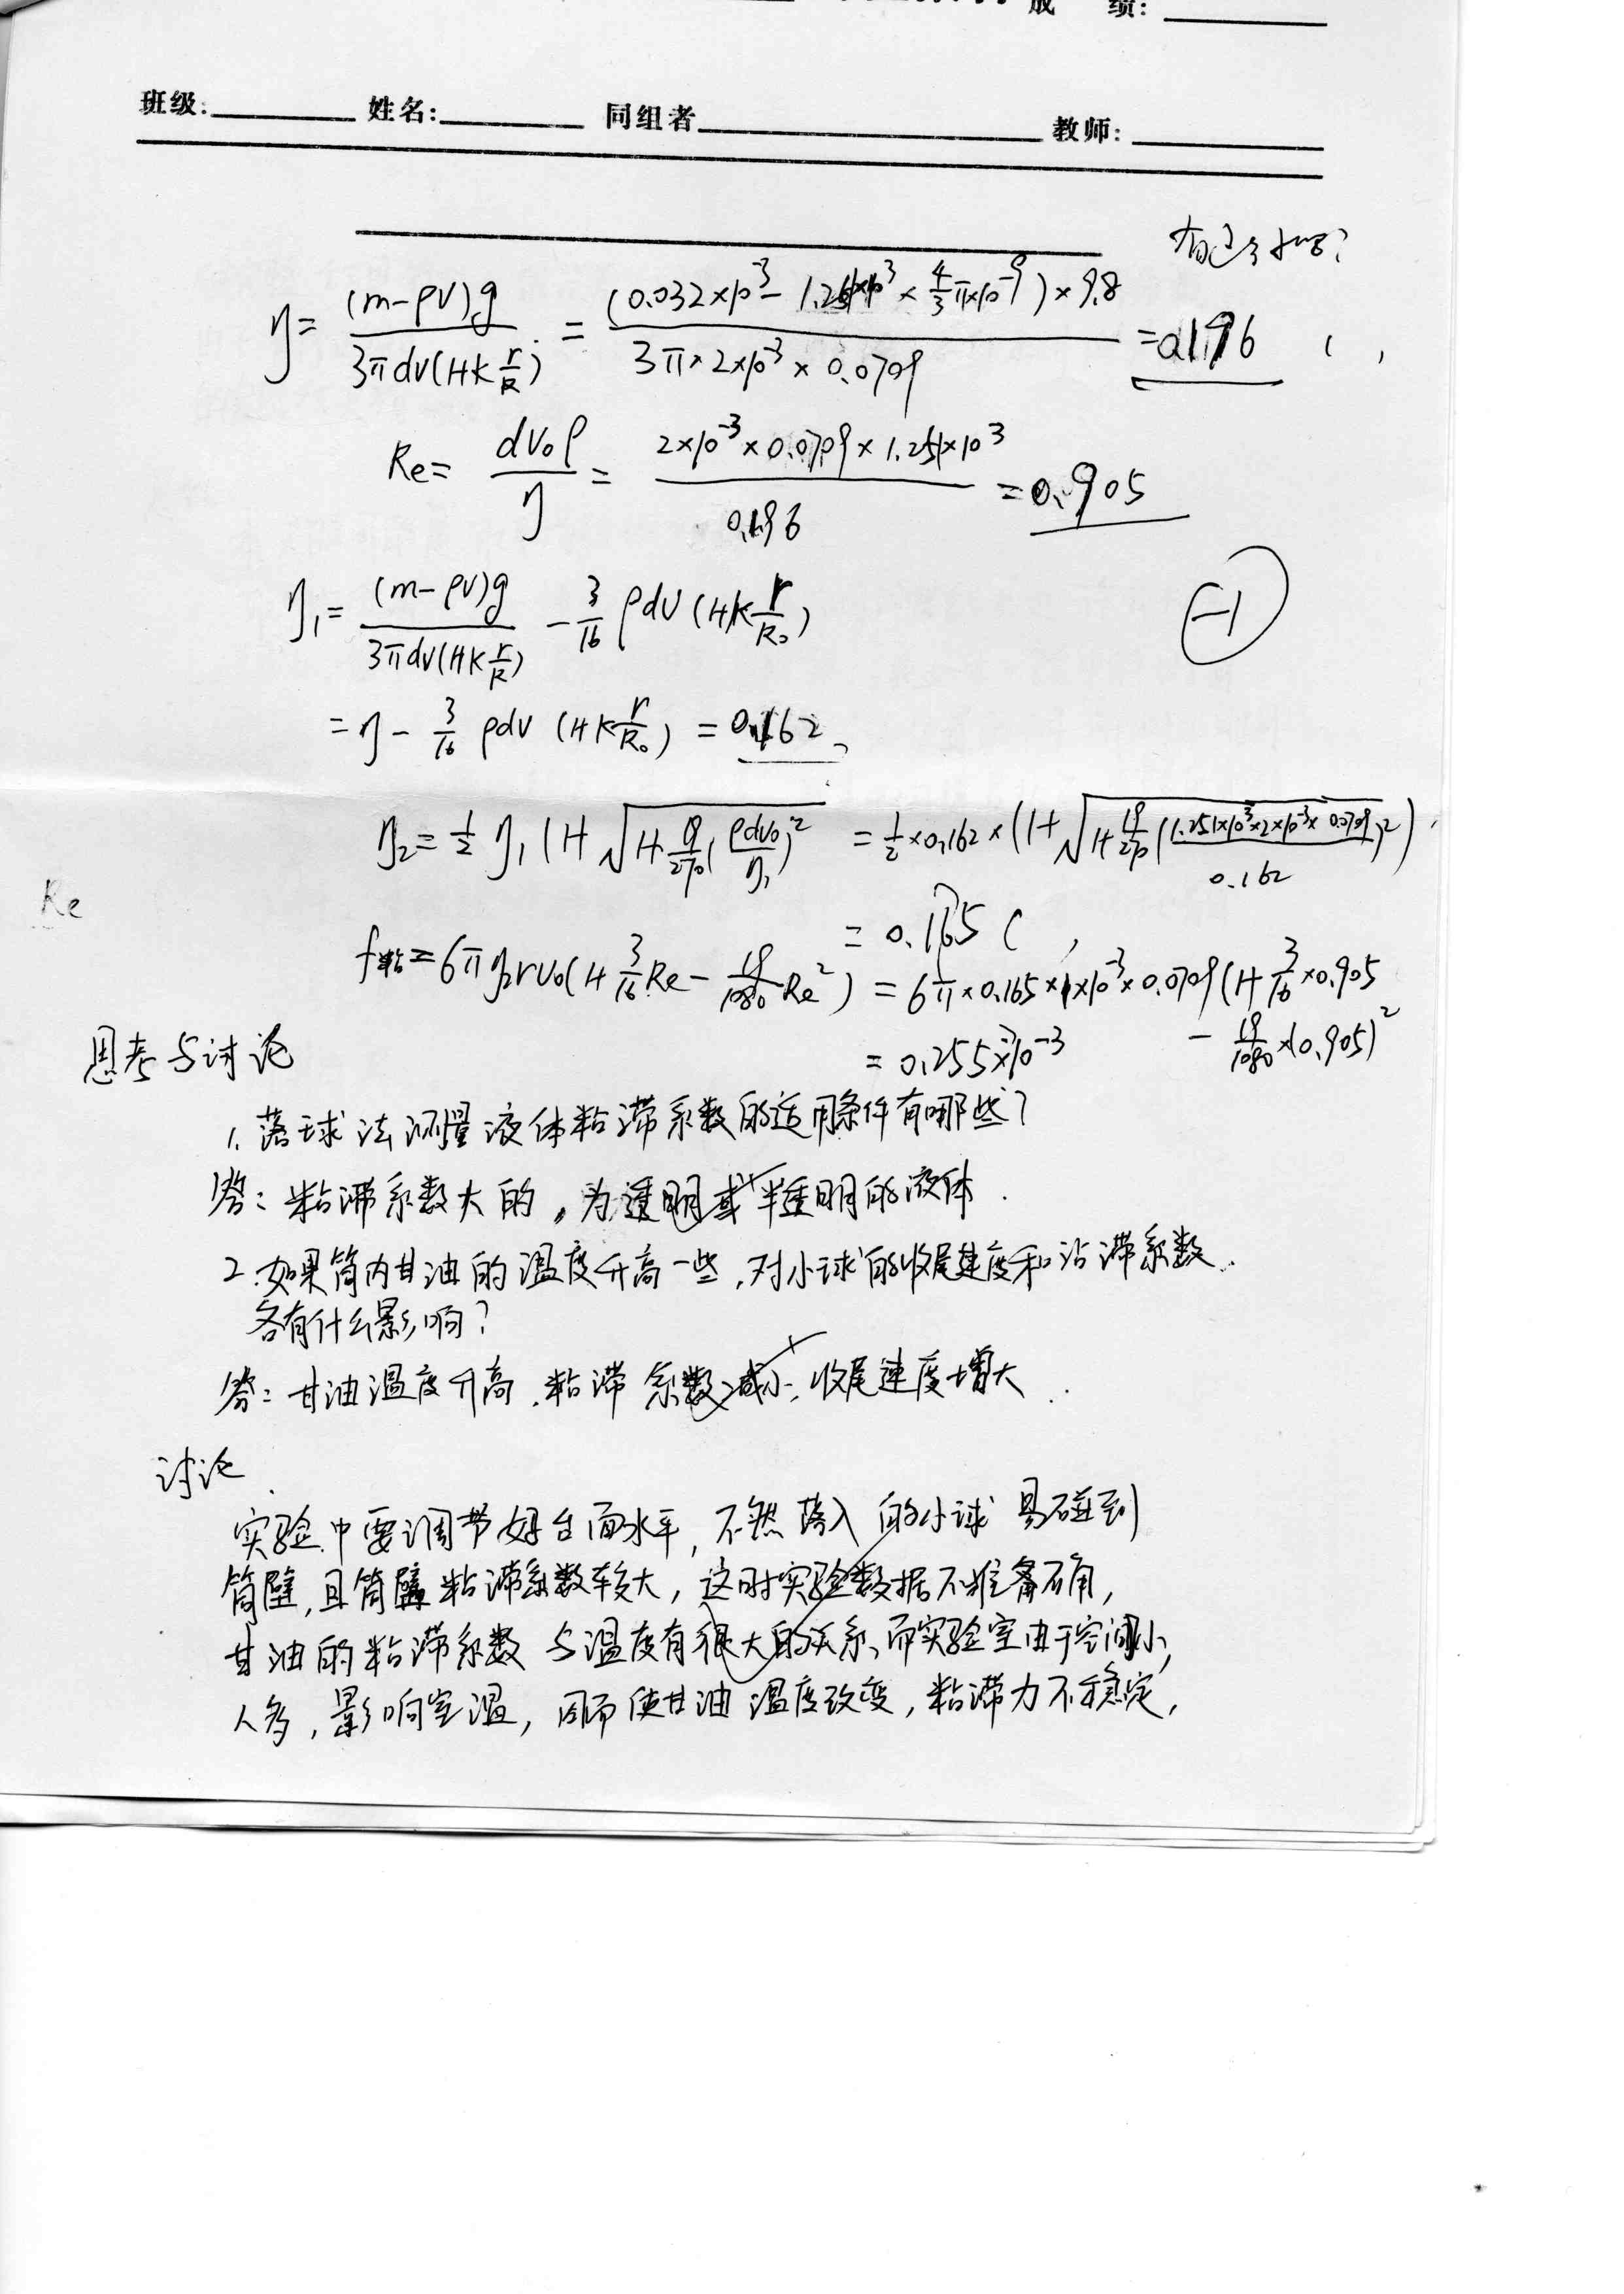 成 绩:
班级: 姓名: 同组者 教师:
η = (m-ρV)g / 3πdv(1+k r/R) = (0.032×10⁻³ - 1.251×10³ × 4/3 π×10⁻⁹) × 9.8 / 3π × 2×10⁻³ × 0.0709 = 0.196
Re = dv₀ρ / η = 2×10⁻³ × 0.0709 × 1.251×10³ / 0.196 = 0.905
-1
η₁ = (m-ρV)g / 3πdv(1+k r/R) - 3/16 ρdv (1+k r/R₀)
= η - 3/16 ρdv (1+k r/R₀) = 0.162
η₂ = 1/2 η₁ (1+ √(1+ 19/270 (ρdv₀/η₁)² = 1/2 × 0.162 × (1+ √(1+ 19/270 (1.251×10³×2×10⁻³×0.0709 / 0.162)²)
= 0.165
Re
f粘 = 6πη₂rv₀(1+ 3/16 Re - 19/1080 Re²) = 6π×0.165×1×10⁻³×0.0709(1+ 3/16 ×0.905
- 19/1080 ×(0.905)²
= 0.255×10⁻³
思考与讨论
1. 落球法测量液体粘滞系数的适用条件有哪些?
答: 粘滞系数大的, 为透明或半透明的液体.
2. 如果筒内甘油的温度升高一些, 对小球的收尾速度和沾滞系数
各有什么影响?
答: 甘油温度升高, 粘滞系数减小, 收尾速度增大.
讨论
实验中要调节好台面水平, 不然落入的小球易碰到
筒壁, 且筒壁粘滞系数较大, 这时实验数据不准备确,
甘油的粘滞系数与温度有很大的关系, 而实验室由于空间小,
人多, 影响室温, 因而使甘油温度改变, 粘滞力不稳定,